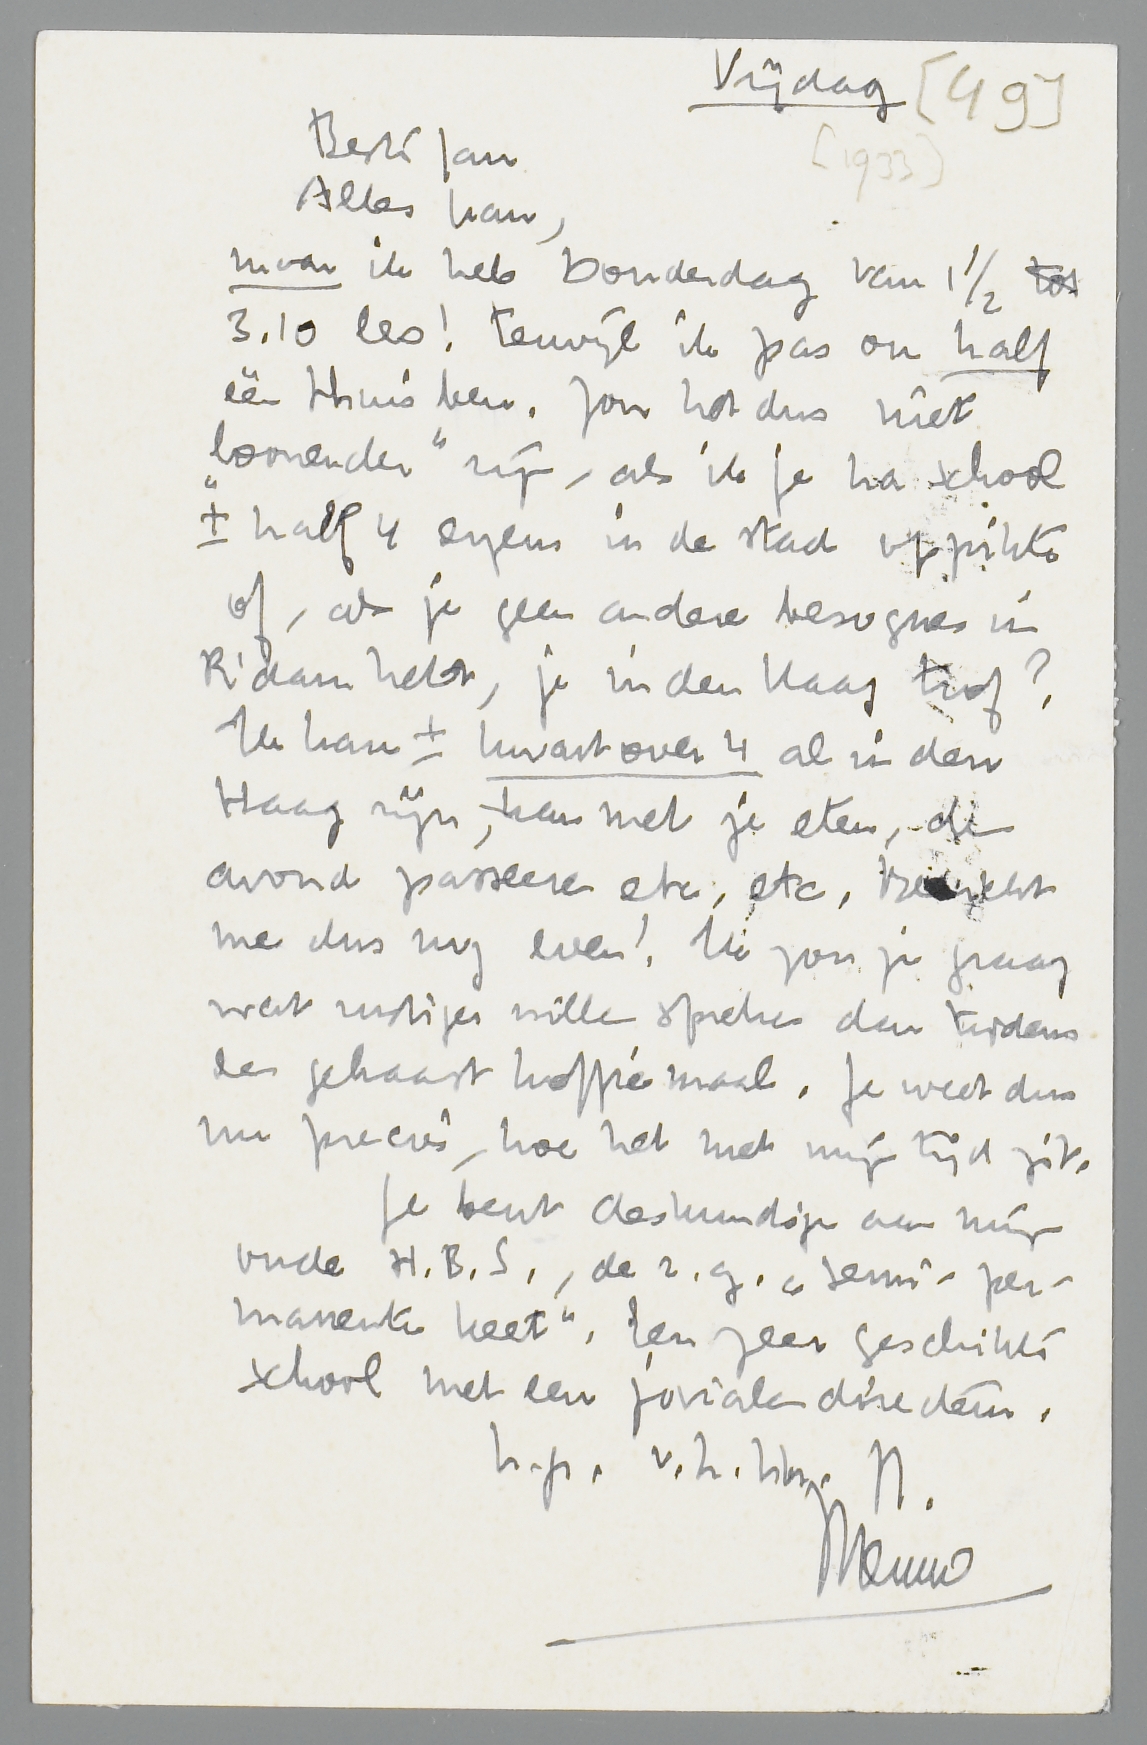 Vrijdag [49]
[1933]
Beste Jan
Alles kan,
maar ik heb Donderdag van 1 1/2 tot
3.10 les! terwijl ik pas om half
één thuis ben. Zou het dus niet
„loonender” zijn, als ik je na school
± half 4 ergens in de stad oppikte
of, als je geen andere besognes in
R'dam hebt, je in den Haag trof?
Ik kan ± kwart over 4 al in den
Haag zijn, kan met je eten, de
avond passeren etc, etc, Bericht
me dus nog even! Ik zou je graag
wat rustiger willen spreken dan tijdens
een gehaast koffiemaal. Je weet dus
nu precies, hoe het met mijn tijd zit.
Je bent deskundige aan mijn
oude H.B.S., de z.g. „semi-per-
manente keet”. Een zeer geschikte
school met een joviale directeur.
h.gr. v.h.t.h. je
Menno